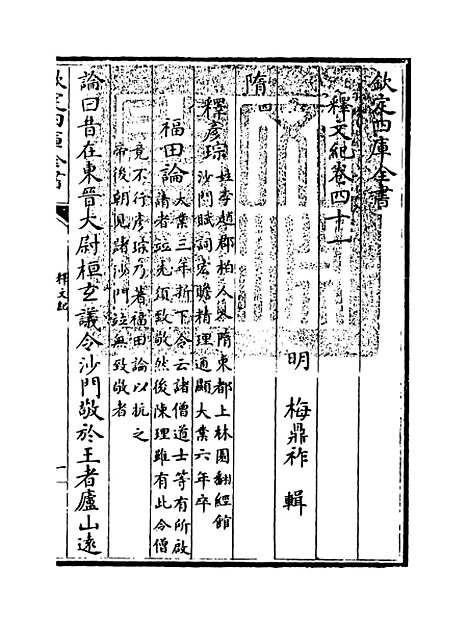 欽定四庫全書
釋文紀卷四十一
明 梅鼎祚 輯
隋四
釋彥琮
姓李趙郡柏人人隋東都上林園翻經館
沙門賦詞宏贍精理通顯大業六年卒
福田論
大業三年新下令云諸僧道士等有所啟
請者竝先須致敬然後陳理雖有此令僧
竟不行彥琮乃著福田論以抗之
帝後朝見諸沙門竝無致敬者
論曰昔在東晉太尉桓玄議令沙門敬於王者廬山遠
欽定四庫全書
釋文紀
一